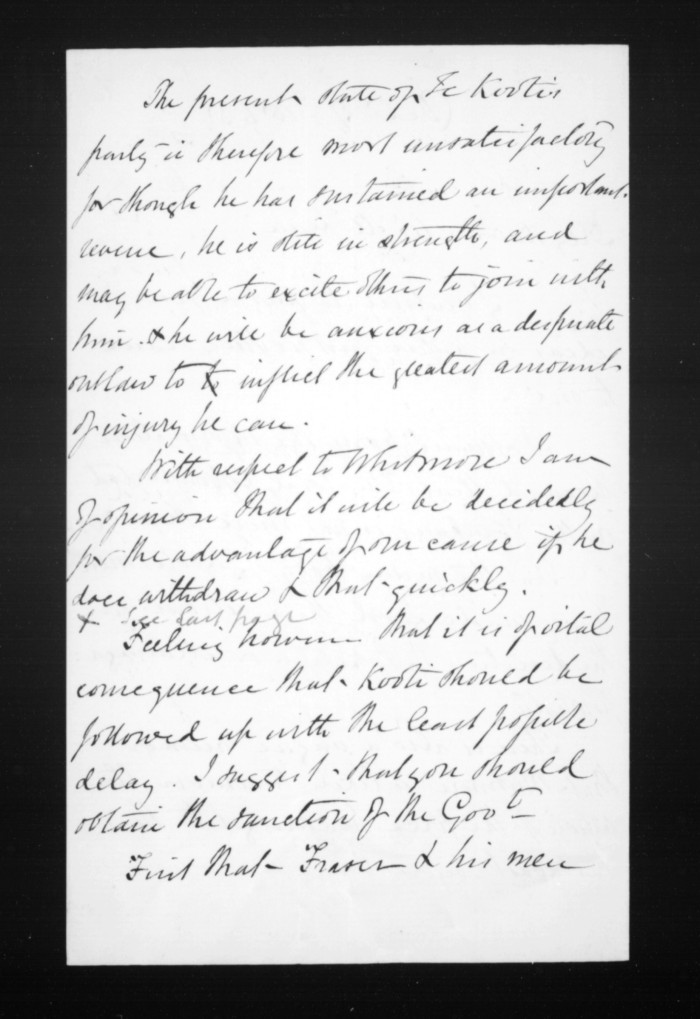 The present state of Te Kooti's
party is therefore most unsatisfactory
for though he has sustained an important
reverse, he is still in strength, and
may be able to excite others to join with
him. & he will be anxious as a desperate
outlaw to to inflict the greatest amount
of injury he can.
With respect to Whitmore I am
of opinion that it will be decidedly
for the advantage of our cause if he
does withdraw & that quickly.
x See last page
Feeling however that it is of vital
consequence that Kooti should be
followed up with the least possible
delay. I suggest that you should
obtain the sanction of the Govt
First that Fraser & his men